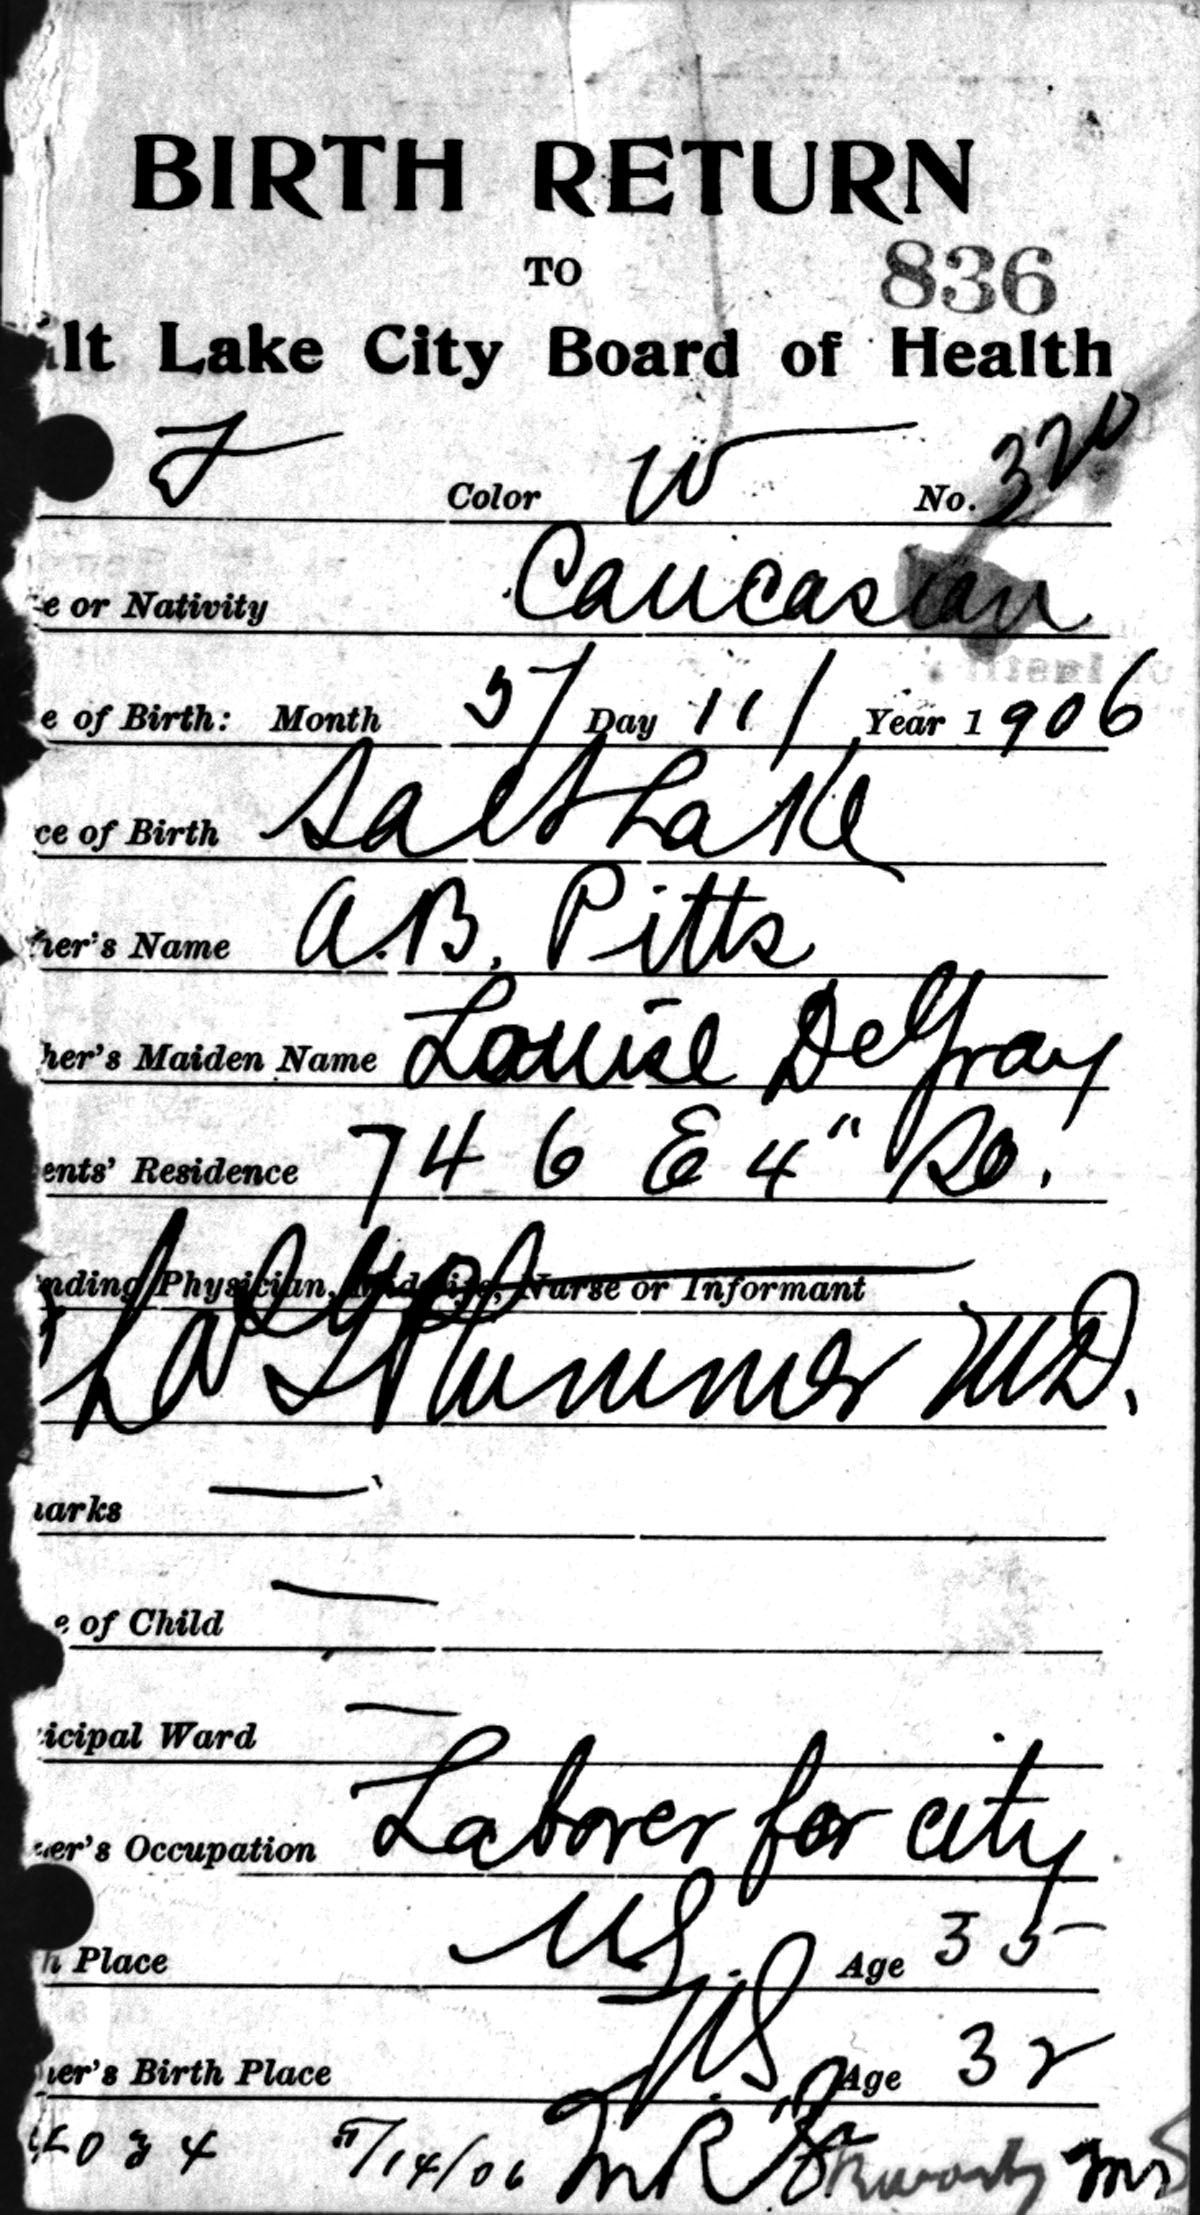 BIRTH RETURN
TO
836
lt Lake City Board of Health
F Color W No. 320
e or Nativity Caucasian
e of Birth: Month 5/ Day 11/ Year 1906
ce of Birth Salt Lake
her's Name A.B. Pitts
her's Maiden Name Louise DeGray
ents' Residence 746 E 4" So.
nding Physician, Midwife, Nurse or Informant
Plummer M.D.
arks —
e of Child —
icipal Ward —
er's Occupation Laborer for city
h Place U.S. Age 35
er's Birth Place U.S. Age 32
5/14/06